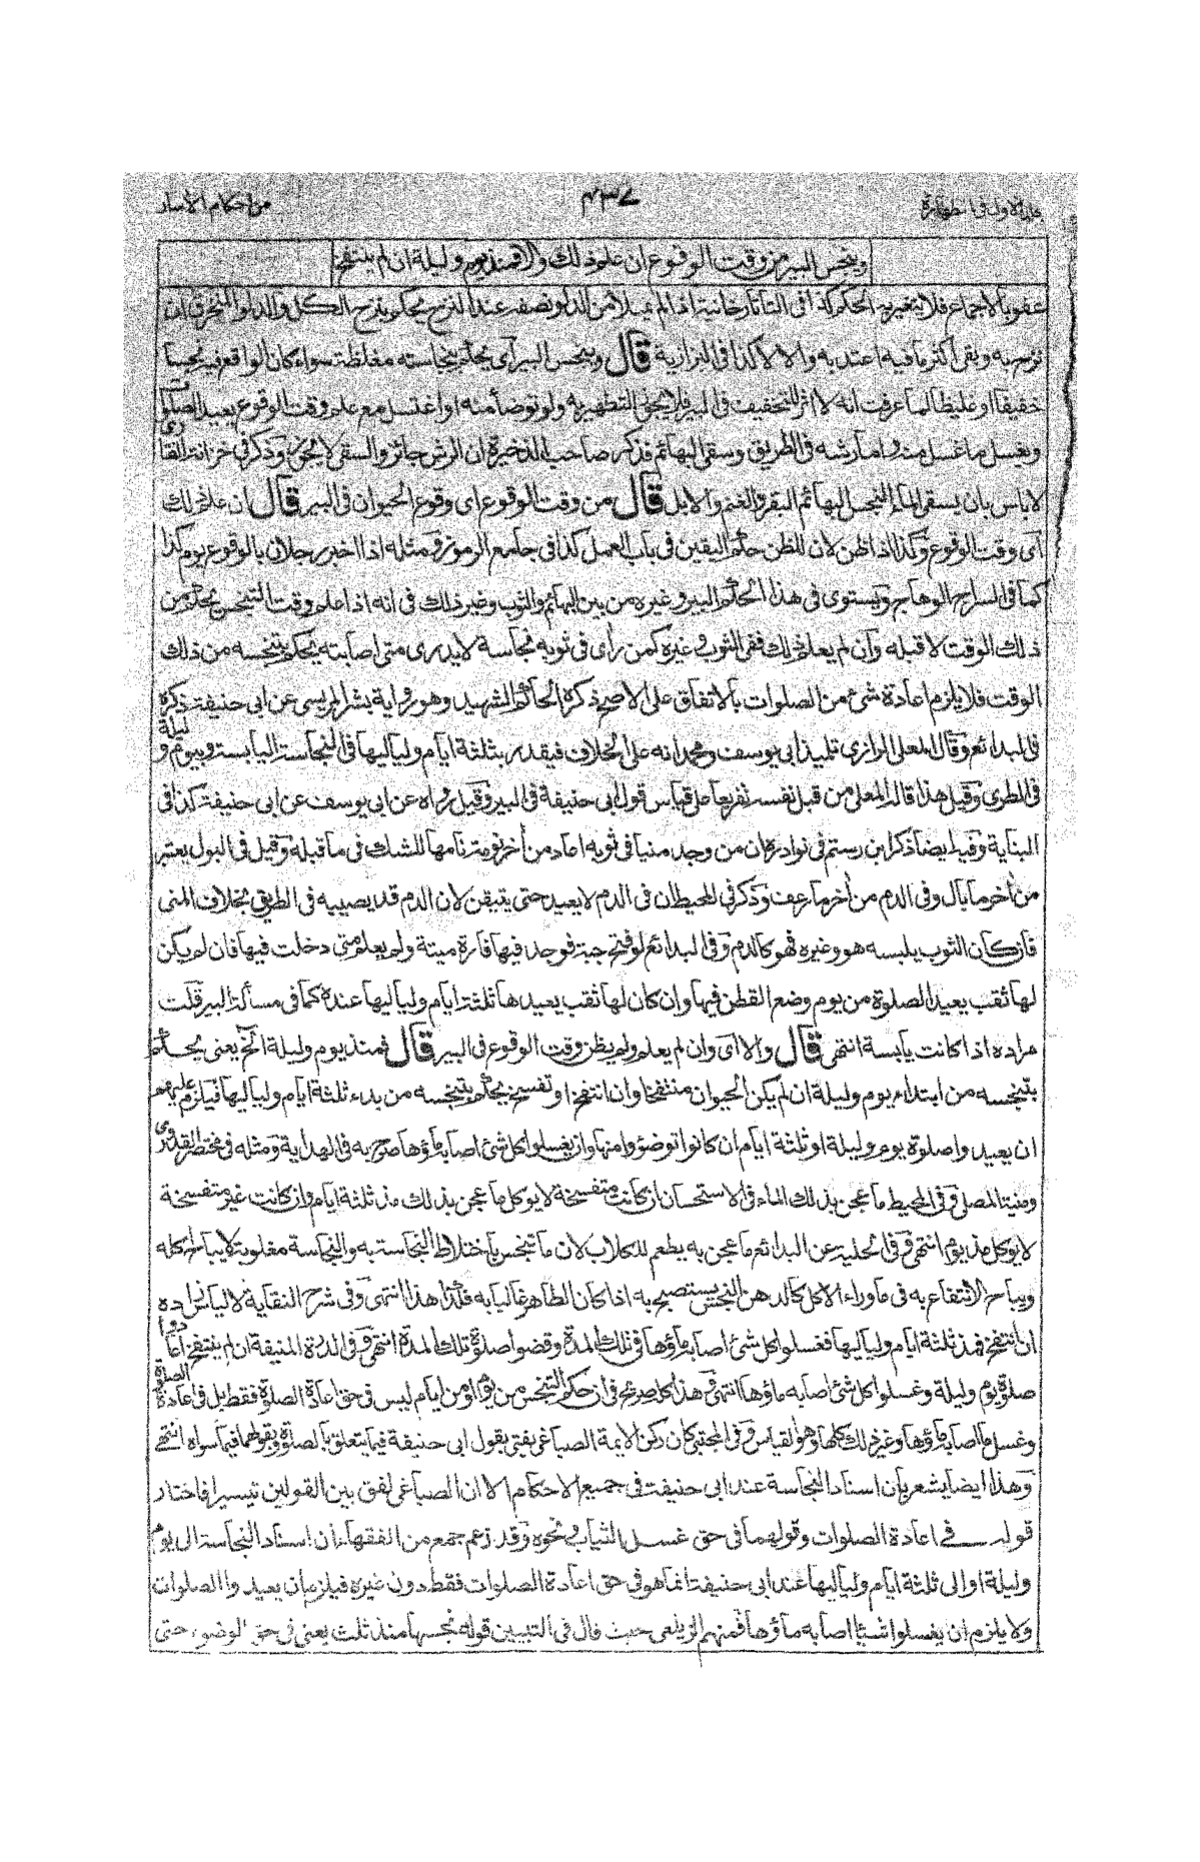 من احكام الأسار
٤٣٧
الاول فى الطهارة
وينجس البير من وقت الوقوع ان علم ذلك والا فمنذ يوم وليلة ان لم ينتفخ
عفو بالاجماع فلا يتغير به الحكم كذا فى التاتارخانية اذا لم يملأ من الدلو نصفه عند النزح يحكم بنزح الكل والدلو المنخرق ان
نزح به وبقى اكثر ما فيه اعتد به والا لا كذا فى البزازية قال وينجس البير اى يحكم بنجاسته مغلظة سواء كان الواقع فيه نجسا
خفيفا او غليظا لما عرفت انه لا اثر للتخفيف فى البير فلا يجوز التطهير به ولو توضأ منه او اغتسل مع علم وقت الوقوع يعيد الصلوات
ويغسل ما غسل منه واما رشه فى الطريق وسقى البهائم فذكر صاحب الذخيرة ان الرش جائز والسقى لا يجوز وذكر فى خزانة الفتاوى
لا باس بان يسقى الماء النجس البهائم البقر والغنم والابل قال من وقت الوقوع اى وقوع الحيوان فى البير قال ان علم ذلك
اى وقت الوقوع وكذا اذا ظن لان للظن حكم اليقين فى باب العمل كذا فى جامع الرموز ومثله اذا اخبر رجلان بالوقوع يوم كذا
كما فى السراج الوهاج ويستوى فى هذا الحكم البير وغيره من بين البهائم والثوب وغير ذلك فى انه اذا علم وقت التنجس يحكم من
ذلك الوقت لا قبله وان لم يعلم ذلك ففى الثوب وغيره كمن رأى فى ثوبه نجاسة لا يدرى متى اصابته يحكم بتنجسه من ذلك
الوقت فلا يلزم اعادة شئ من الصلوات بالاتفاق على الاصح ذكره الحاكم الشهيد وهو رواية بشر المريسى عن ابى حنيفة ذكره
فى البدائع وقال المعلى الرازى تلميذ ابى يوسف ومحمد انه على الخلاف فيقدر بثلثة ايام ولياليها فى النجاسة اليابسة وبيوم وليلة
فى الطرى وقيل هذا قاله المعلى من قبل نفسه تفريعا على قياس قول ابى حنيفة فى البير وقيل رواه عن ابى يوسف عن ابى حنيفة كذا فى
البناية وفيه ايضا ذكر ابن رستم فى نوادره ان من وجد منيا فى ثوبه اعاد من أخر نومة نامها للشك فى ما قبله وقيل فى البول يعتبر
من أخر ما بال وفى الدم من أخر ما رعف وذكر فى المحيط ان فى الدم لا يعيد حتى يتيقن لان الدم قد يصيبه فى الطريق بخلاف المنى
فان كان الثوب يلبسه هو وغيره فهو كالدم وفى البدائع لو فتح جبة فوجد فيها فارة ميتة ولم يعلم متى دخلت فيها فان لم يكن
لها ثقب يعيد الصلوة من يوم وضع القطن فيها وان كان لها ثقب يعيدها ثلثة ايام ولياليها عنده كما فى مسألة البير قلت
مراده اذا كانت يابسة انتهى قال والا اى وان لم يعلم ولم يظن وقت الوقوع فى البير قال فمنذ يوم وليلة الخ يعنى يحكم
بتنجسه من ابتداء يوم وليلة ان لم يكن الحيوان منتفخا وان انتفخ او تفسخ يحكم بتنجسه من بدء ثلثة ايام ولياليها فيلزم عليهم
ان يعيدوا صلوة يوم وليلة او ثلثة ايام ان كانوا توضؤا منها وان يغسلوا كل شئ اصابه ماؤها صرح به فى الهداية ومثله فى مختصر القدورى
ومنية المصلى وفى المحيط ما عجن بذلك الماء فى الاستحسان ان كانت متفسخة لا يوكل ما عجن بذلك منذ ثلثة ايام وان كانت غير متفسخة
لا يوكل منذ يوم انتهى وفى الحلية عن البدائع ما عجن به يطعم للكلاب لان ما تنجس باختلاط النجاسة به والنجاسة مغلوبة لا يباح اكله
ويباح الانتفاع به فى ما وراء الاكل كالدهن النجس يستصبح به اذا كان الطاهر غالبا به فكذا هذا انتهى وفى شرح النقاية لالياس زاده
ان انتفخ فمنذ ثلثة ايام ولياليها فغسلوا كل شئ اصابه ماؤها فى تلك المدة وقضوا صلوة تلك المدة انتهى وفى الدرة المنيفة ان لم ينتفخ اعادوا
صلوة يوم وليلة وغسلوا كل شئ اصابه ماؤها انتهى وهذا كله صريح فى ان حكم التنجس من يوم او من ايام ليس فى حق اعادة الصلوة فقط بل فى اعادة الصلوة
وغسل ما اصابه ماؤها وغير ذلك كلها وهو القياس وفى المجتبى كان ركن الائمة الصباغى يفتى بقول ابى حنيفة فيما يتعلق بالصلوة وبقولهما فيما سواه انتهى
وهذا ايضا يشعر بان اسناد النجاسة عند ابى حنيفة فى جميع الاحكام الا ان الصباغى لفق بين القولين تيسيرا فاختار
قوله فى اعادة الصلوات وقولهما فى حق غسل الثياب ونحوه وقد زعم جمع من الفقهاء ان اسناد النجاسة الى يوم
وليلة او الى ثلثة ايام ولياليها عند ابى حنيفة انما هو فى حق اعادة الصلوات فقط دون غيره فيلزم ان يعيدوا الصلوات
ولا يلزم ان يغسلوا شيئا اصابه ماؤها فمنهم الزيلعى حيث قال فى التبيين قوله نجسها منذ ثلث يعنى فى حق الوضوء حتى